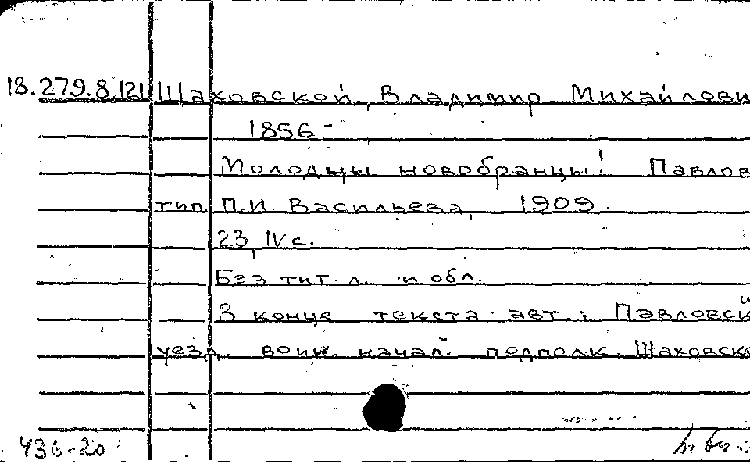 18.279.8.121 Шаховской, Владимир Михайлови
1856-
Молодцы новобранцы! Павлов
тип. П.И. Васильева, 1909.
23, IV с.
Без тит. л. и обл.
В конце текста авт.: Павловский
уезд. воин. начал. подполк. Шаховско
436-20